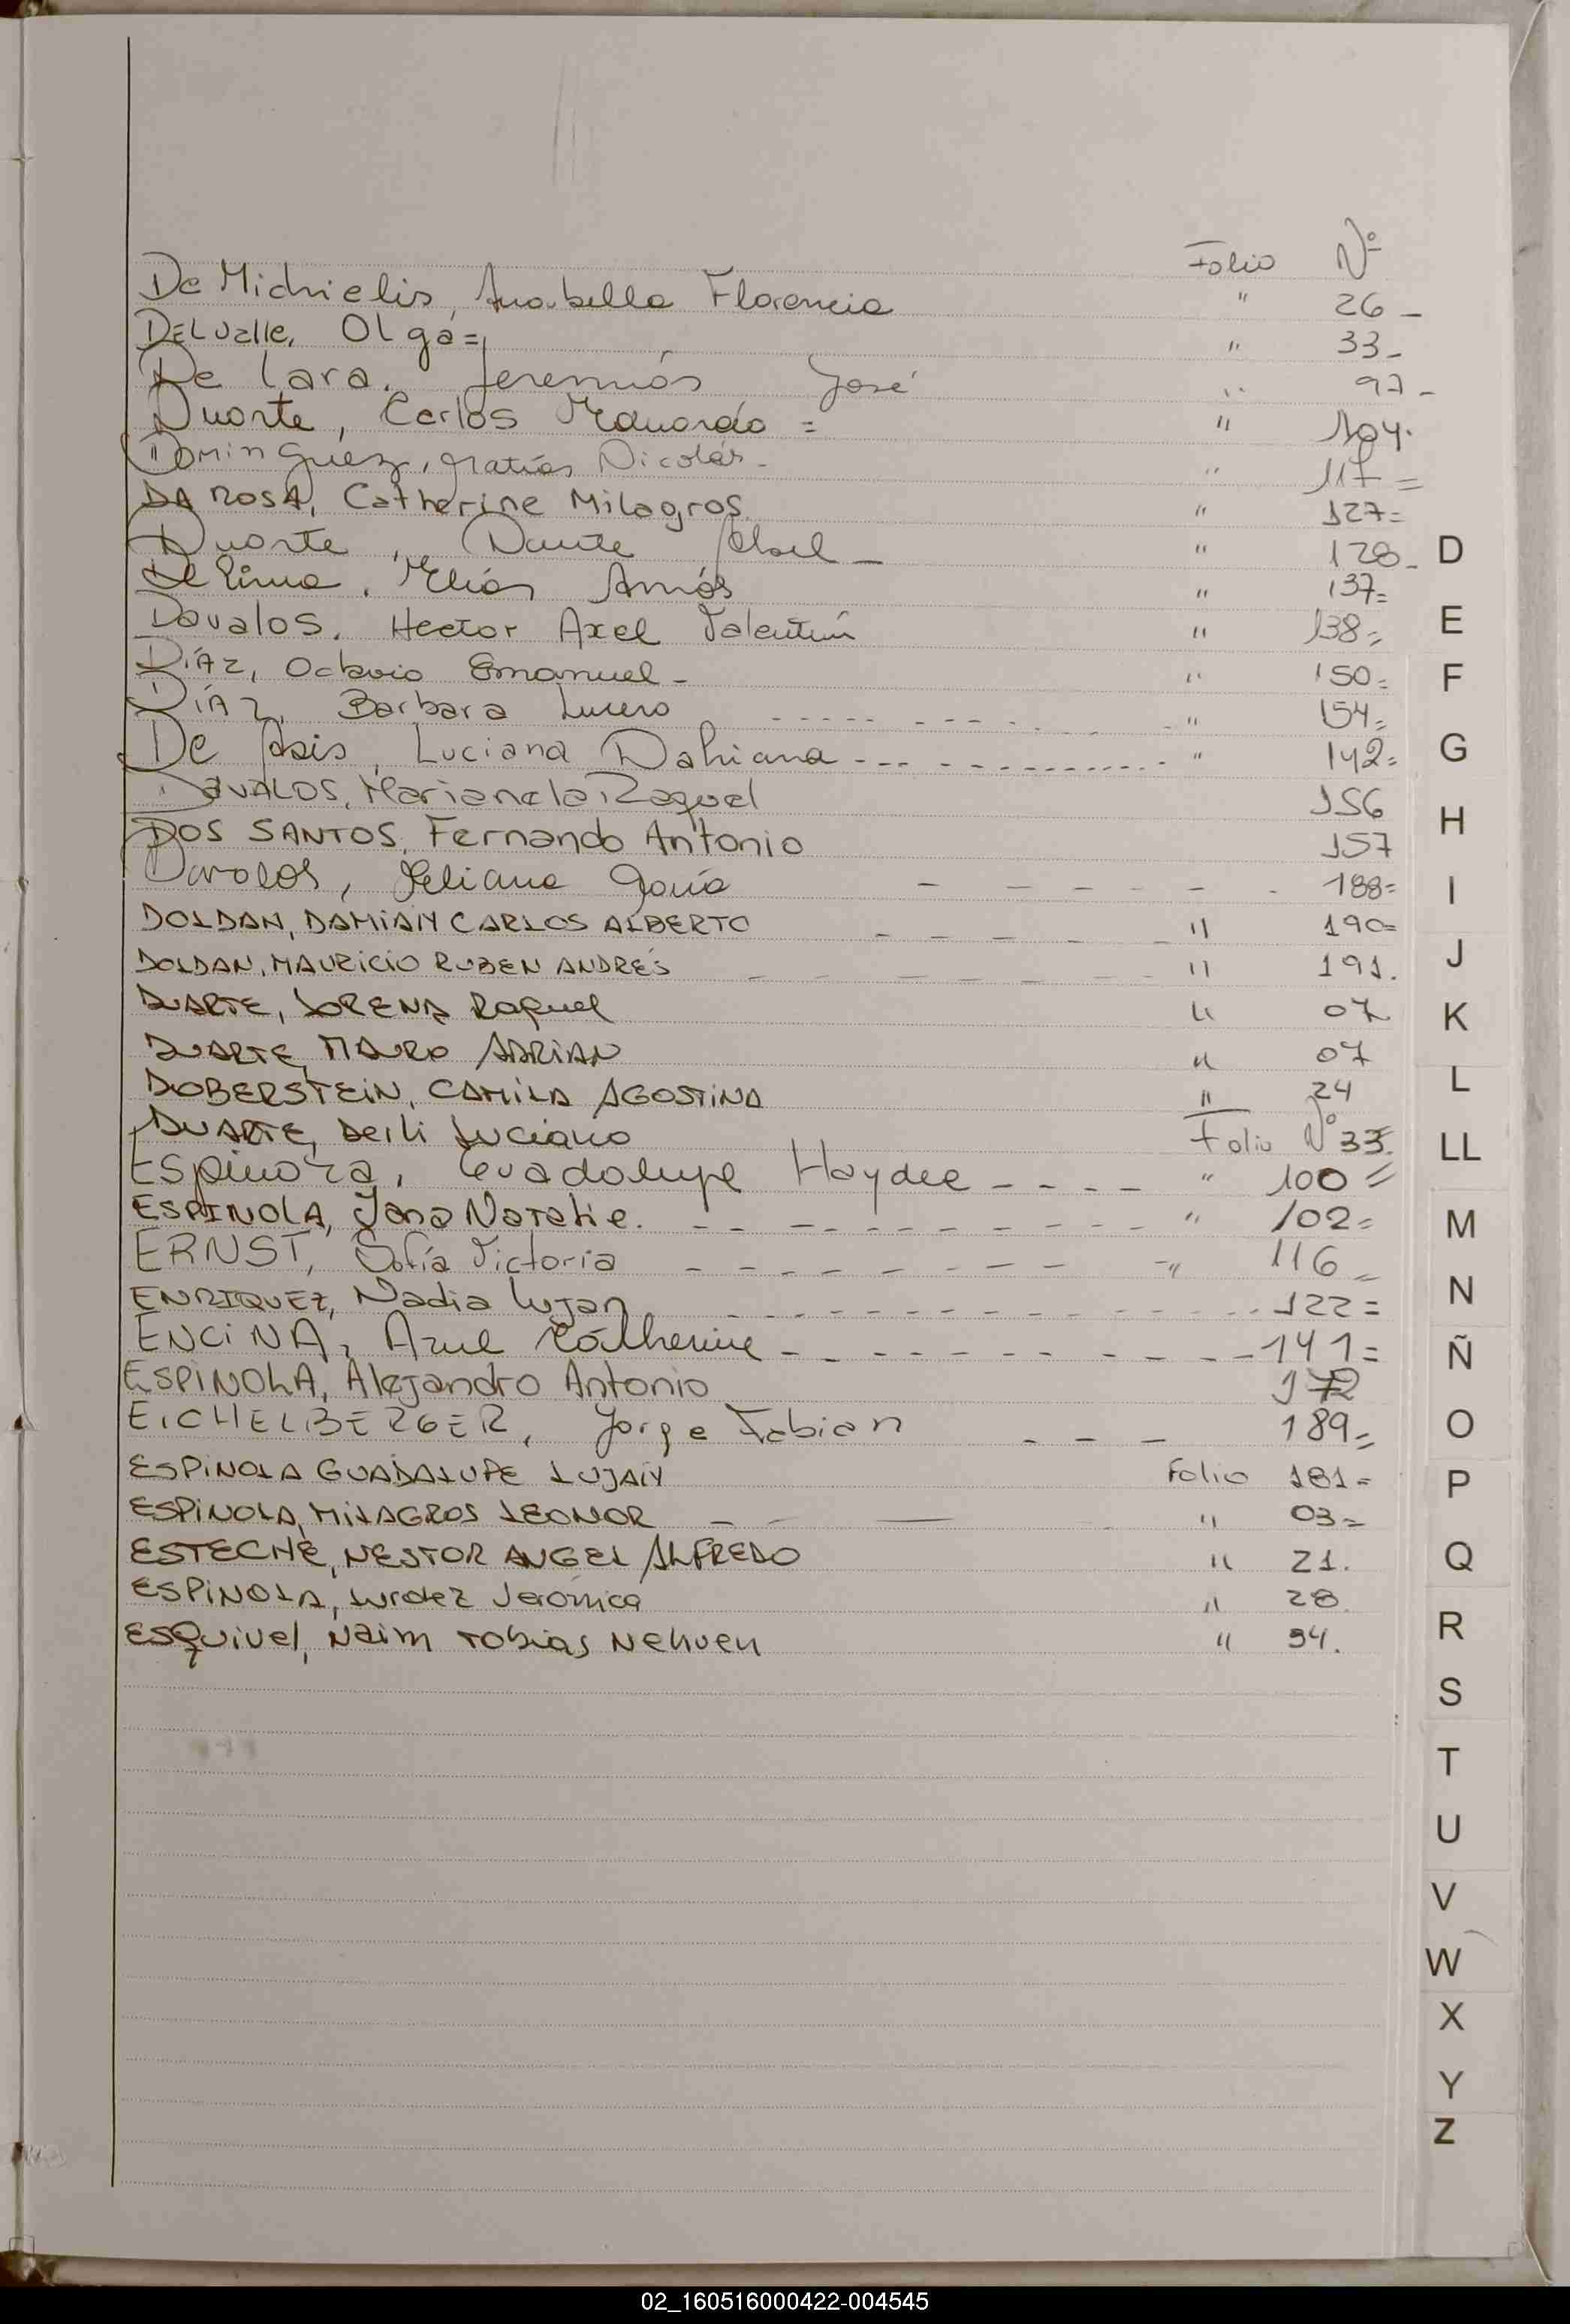 Folio Nº
De Michielis, Anabella Florencia " 26 -
DELValle, Olga = " 33 -
De Lara, Jeremías José " 97 -
Duarte, Carlos Eduardo = " 104.
Dominguez, Matías Nicolás - " 117 =
DA ROSA, Catherine Milagros " 127 =
Duarte, Dante Abel - " 128 -
De Lima, Elías Amós " 137 =
Davalos, Hector Axel Valentín " 138 =
DÍAZ, Octavio Emanuel - " 150 =
DÍAZ, Barbara Lucero - - - - - - - - - " 154 =
De Asis, Luciana Dahiana - - - - - - - - - " 142 =
DAVALOS, Marianela Raquel 156
DOS SANTOS, Fernando Antonio 157
Davalos, Liliana - - - - - - 188 =
DOLDAN, DAMIAN CARLOS ALBERTO - - - - - " 190 =
DOLDAN, MAURICIO RUBEN ANDRÉS - - - - - " 191.
DUARTE, LORENA Raquel " 07
DUARTE, MAURO ADRIAN " 07
DOBERSTEIN, CAMILA AGOSTINA " 24
DUARTE, Luciano Folio Nº 33.
Espinoza, Guadalupe Haydee - - - - " 100 =
ESPINOLA, Natalie. - - - - - - - - " 102 =
ERNST, Sofía Victoria - - - - - - - - - " 116 =
ENRIQUEZ, Nadia Lujan - - - - - - - - - 122 =
ENCINA, Azul Katherine - - - - - - - - - 141 =
ESPINOLA, Alejandro Antonio 172
EICHELBERGER, Jorge Fabian - - - 189 =
ESPINOLA GUADALUPE LUJAN Folio 181 =
ESPINOLA, MILAGROS LEONOR - - - " 03 =
ESTECHE, NESTOR ANGEL ALFREDO " 21.
ESPINOLA, Lurdez Verónica " 28.
ESQUIVEL, Naim Tobias Nehuen " 34.
D
E
F
G
H
I
J
K
L
LL
M
N
Ñ
O
P
Q
R
S
T
U
V
W
X
Y
Z
02_160516000422-004545